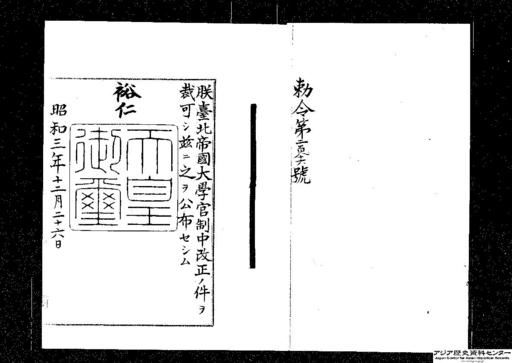 勅令第
號
朕臺北帝國大學官制中改正ノ件ヲ
裁可シ茲ニ之ヲ公布セシム
裕仁
天皇
御璽
昭和三年十二月二十六日
アジア歴史資料センター
Japan Center for Asian Historical Records